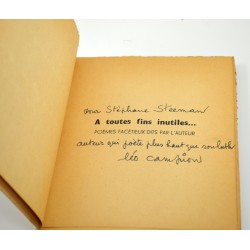 pour Stéphane Steeman
A toutes fins inutiles...
POÈMES FACÉTIEUX DITS PAR L'AUTEUR
auteur qui poète plus haut que son luth
léo campion